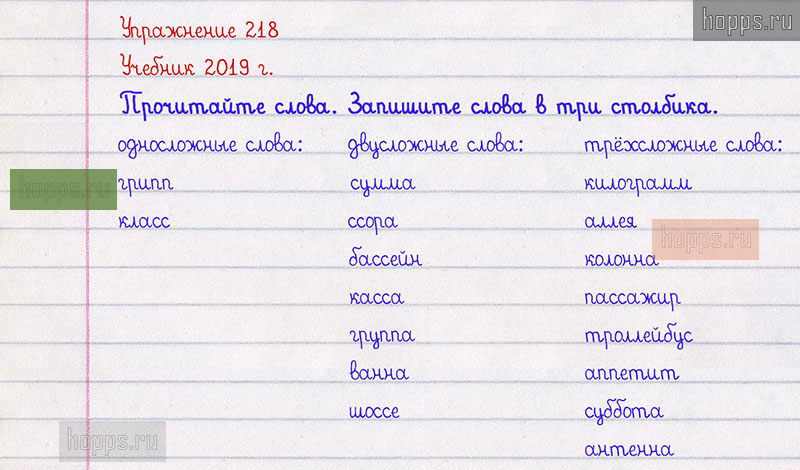 hopps.ru
Упражнение 218
Учебник 2019 г.
Прочитайте слова. Запишите слова в три столбика.
односложные слова: двусложные слова: трёхсложные слова:
hopps.ru
грипп сумма килограмм
класс ссора аллея
hopps.ru
бассейн колонна
касса пассажир
группа троллейбус
ванна аппетит
шоссе суббота
hopps.ru
антенна